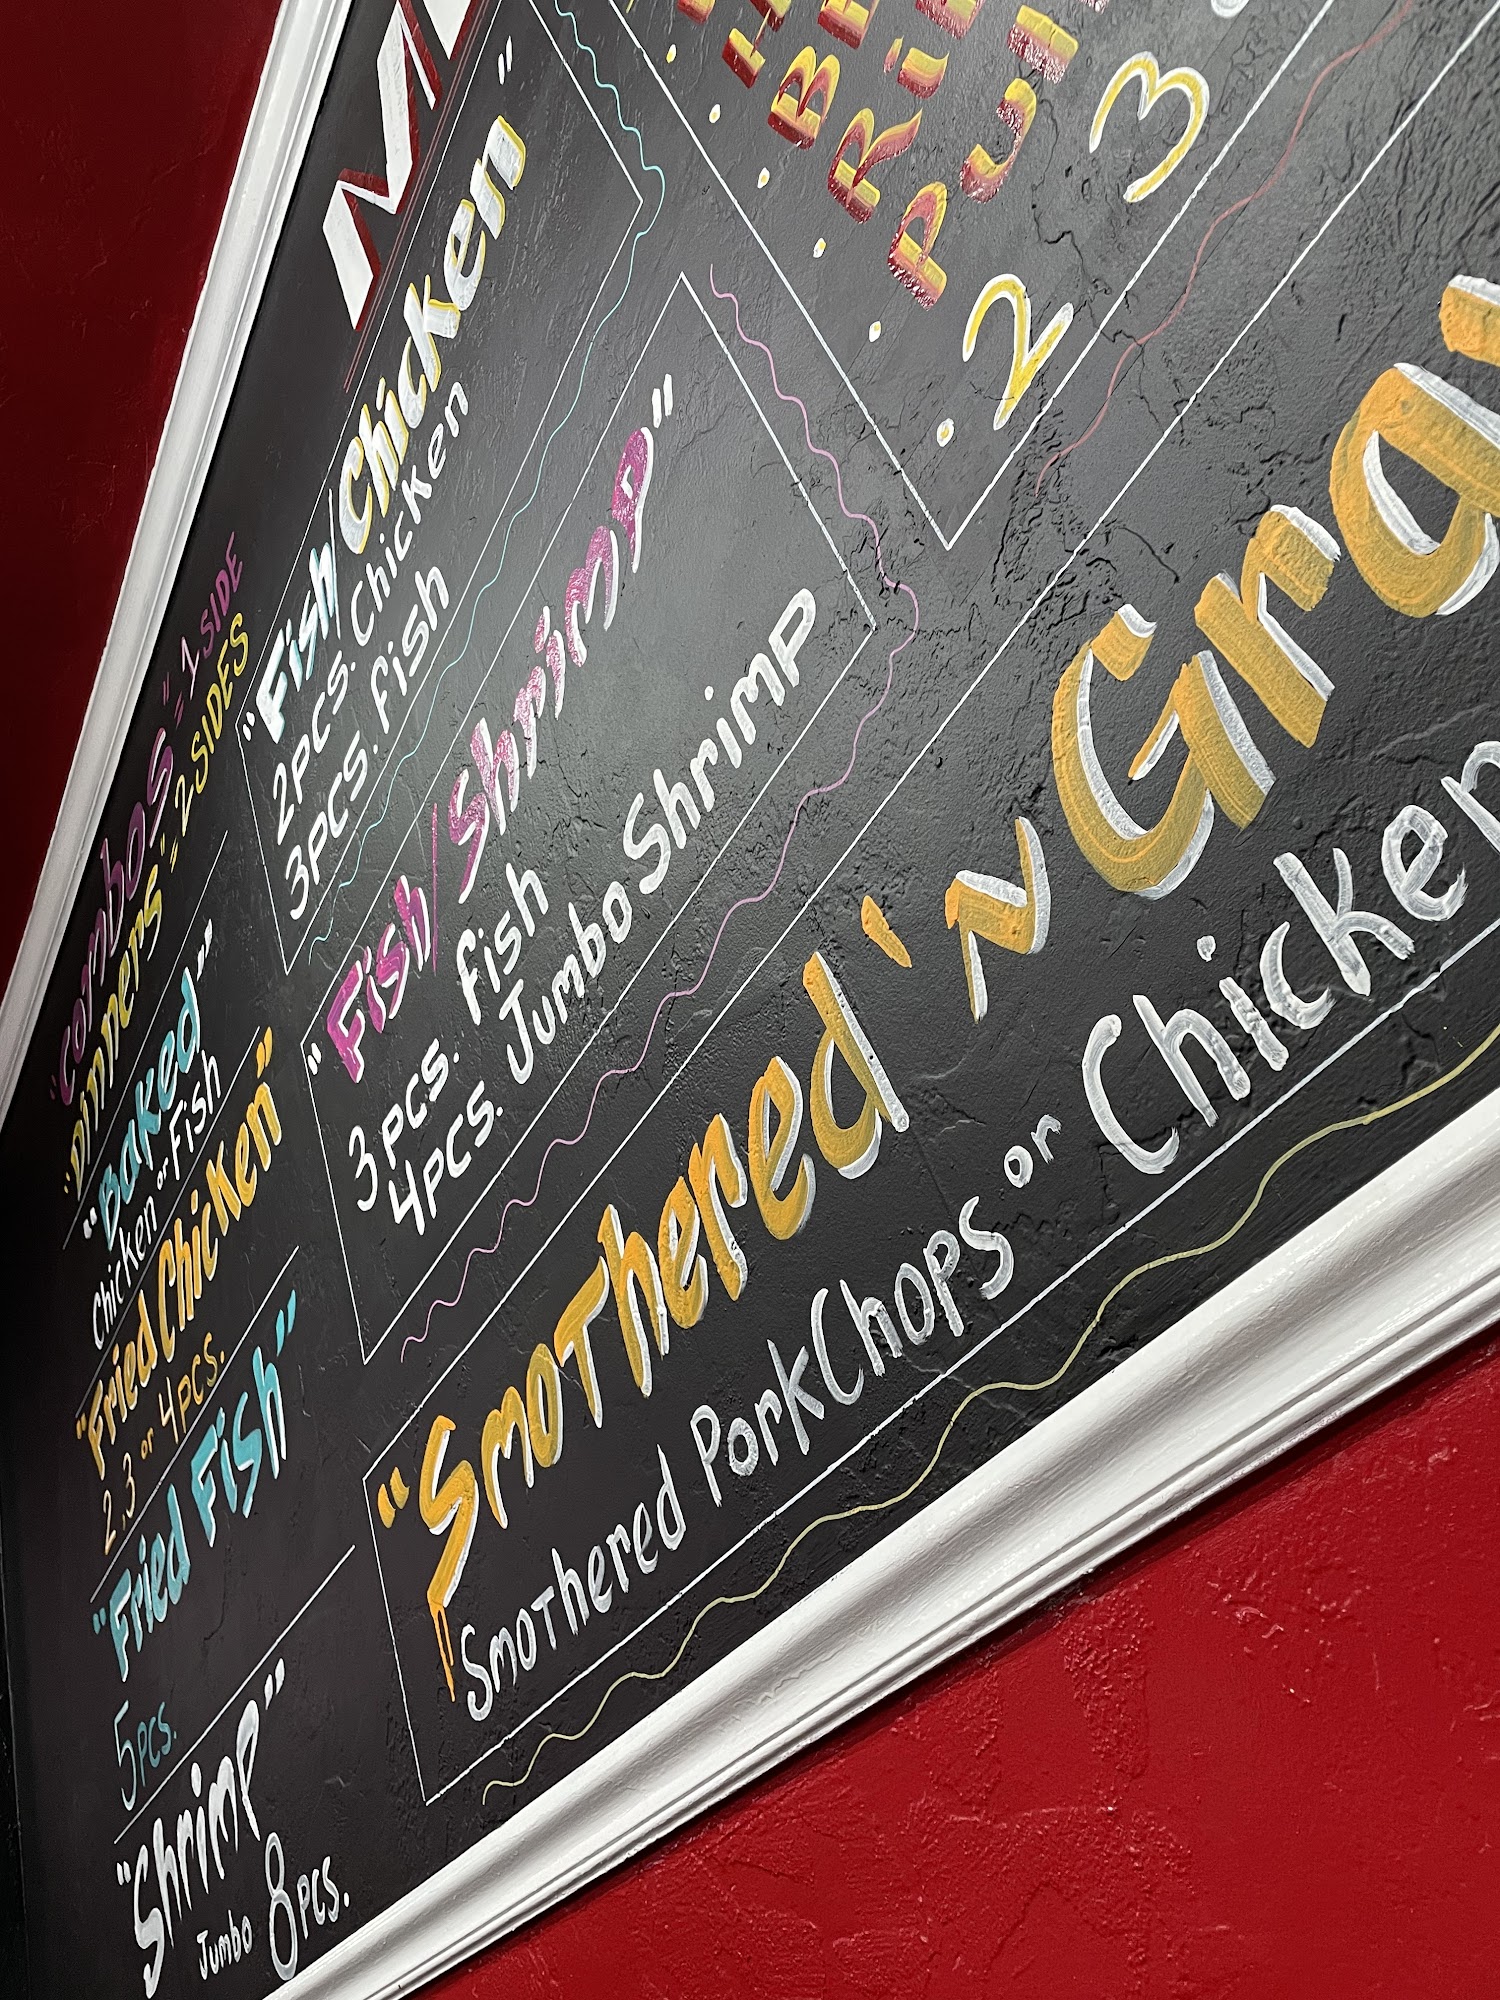 "Combos" = 1 SIDE
"Dinners" = 2 SIDES
"Baked"
Chicken or Fish
"Fried Chicken"
2, 3 or 4 PCS.
"Fried Fish"
5 PCS.
"Shrimp"
Jumbo 8 PCS.
"Fish/Chicken"
2 PCS. Chicken
3 PCS. Fish
"Fish/Shrimp"
3 PCS. Fish
4 PCS. Jumbo Shrimp
3
2
"Smothered 'N
Smothered Pork Chops or Chicken